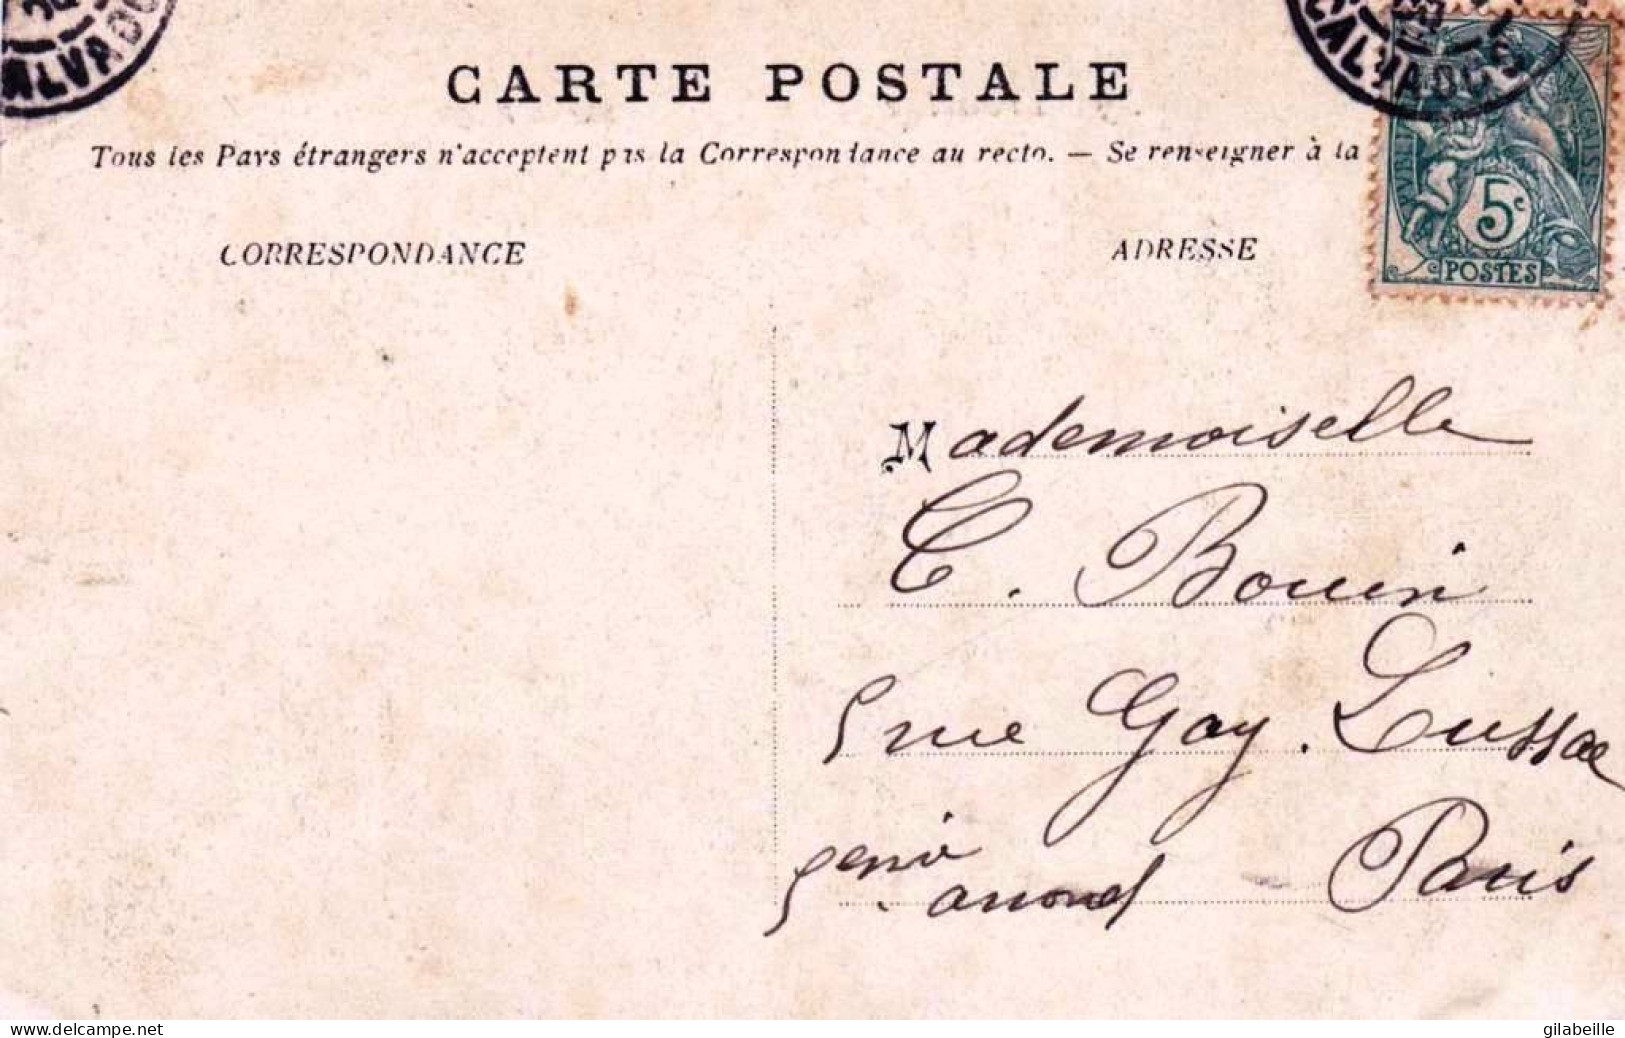 CALVADOS
CARTE POSTALE
Tous les Pays étrangers n'acceptent pas la Correspondance au recto. — Se renseigner à la
CORRESPONDANCE
ADRESSE
5c
POSTES
Mademoiselle
C. Bouin
5 rue Gay. Lussac
5eme arrond Paris
www.delcampe.net
gilabeille